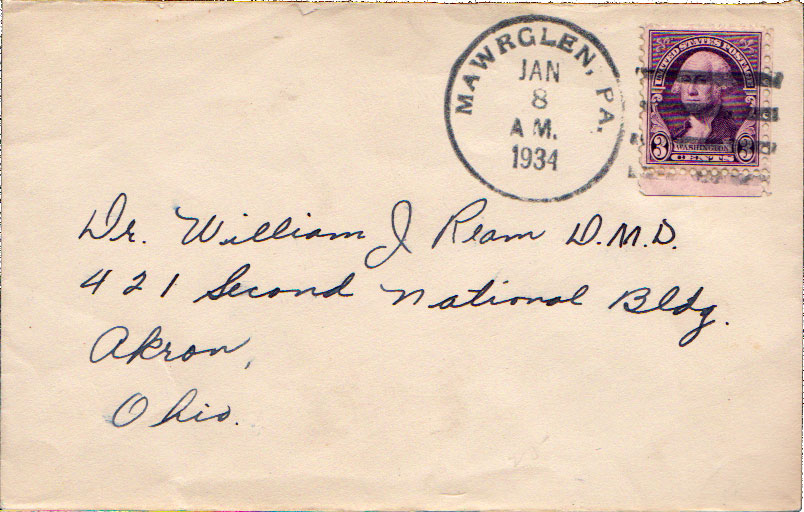 MAWRGLEN, PA.
JAN
8
A M.
1934
UNITED STATES POSTAGE
3 WASHINGTON 3
CENTS
Dr. William J Ream D.M.D.
421 Second National Bldg.
Akron,
Ohio.